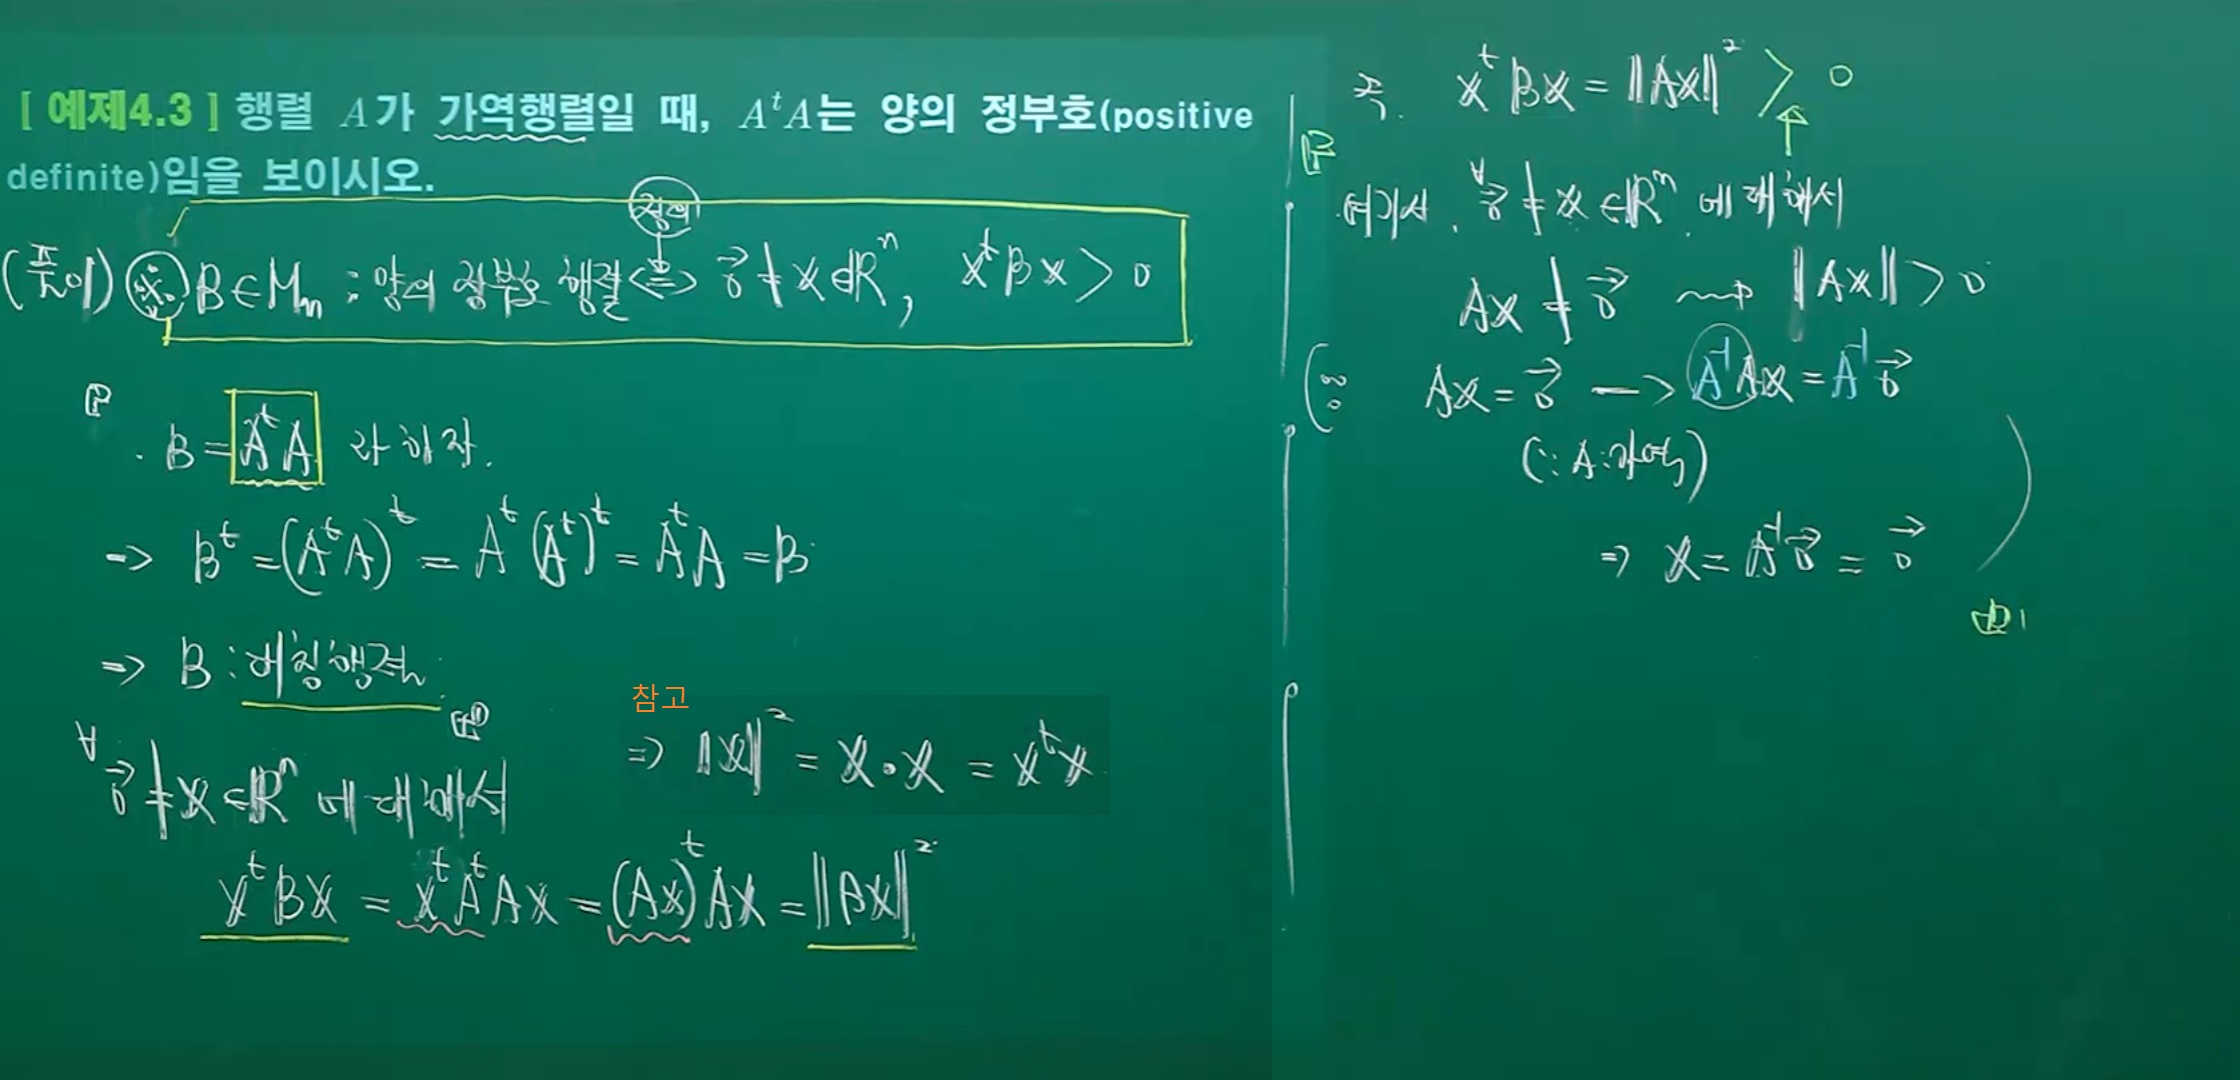 [ 예제4.3 ] 행렬 A가 가역행렬일 때, AᵗA는 양의 정부호(positive
definite)임을 보이시오.
정의
(풀이) ※ B∈Mₙ : 양의 정부호 행렬 <=> 0⃗ ≠ x ∈ ℝⁿ, xᵗBx > 0
B = AᵗA 라 하자.
=> Bᵗ = (AᵗA)ᵗ = Aᵗ(Aᵗ)ᵗ = AᵗA = B
=> B : 대칭행렬
∀ 0⃗ ≠ x ∈ ℝⁿ 에 대해서
참고
=> ‖x‖² = x · x = xᵗx
xᵗBx = xᵗAᵗAx = (Ax)ᵗAx = ‖Ax‖²
즉. xᵗBx = ‖Ax‖² > 0
여기서, ∀ 0⃗ ≠ x ∈ ℝⁿ 에 대해서
Ax ≠ 0⃗ ⇝ ‖Ax‖ > 0
Ax = 0⃗ —> A⁻¹Ax = A⁻¹0⃗
(∵ A : 가역)
=> x = A⁻¹0⃗ = 0⃗